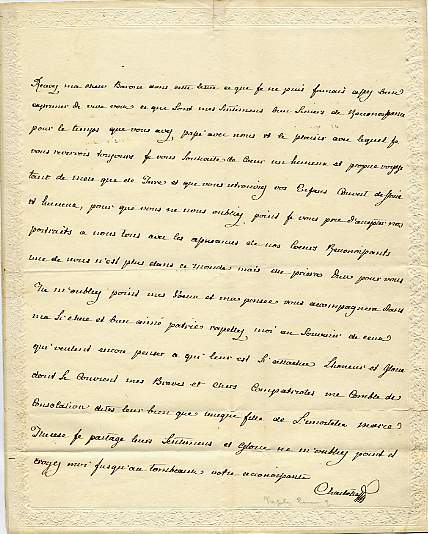 Recevez ma chere Baronne dans cette lettre ce que je ne puis jamais assez bien
exprimer de vive voix ce que sont mes sentimens bien sinceres de Reconoissance
pour le temps que vous avez passé avec nous et le plaisir avec lequel je
vous reverrois toujours je vous souhaite de cœur un heureux et propice voyage
tant de mere que de Terre et que vous retrouviez vos Enfans Couvert de gloire
et honneur, pour que vous ne nous oubliez point je vous prie d'accepter nos
portraits a nous tous avec les assurances de nos cœurs Reconoissants
une de nous n'est plus dans ce monde mais elle priera Dieu pour vous
m'oubliez point mes Voeux et mes pensées vous accompagnera dans
ma si chere et bien aimée patrie rapellez moi au Souvenir de ceux
qui veulent encore penser a qui leur est si attachée L'honneur et Gloire
dont se Couvrent mes Braves et Chers Compatriotes me Comble de
Consolation dites leur bien que unique fille de L'immortelle
Therese je partage leurs Sentimens et Gloire ne m'oubliez point et
croyez moi jusqu'au tombeau votre reconoissante
Charlotte